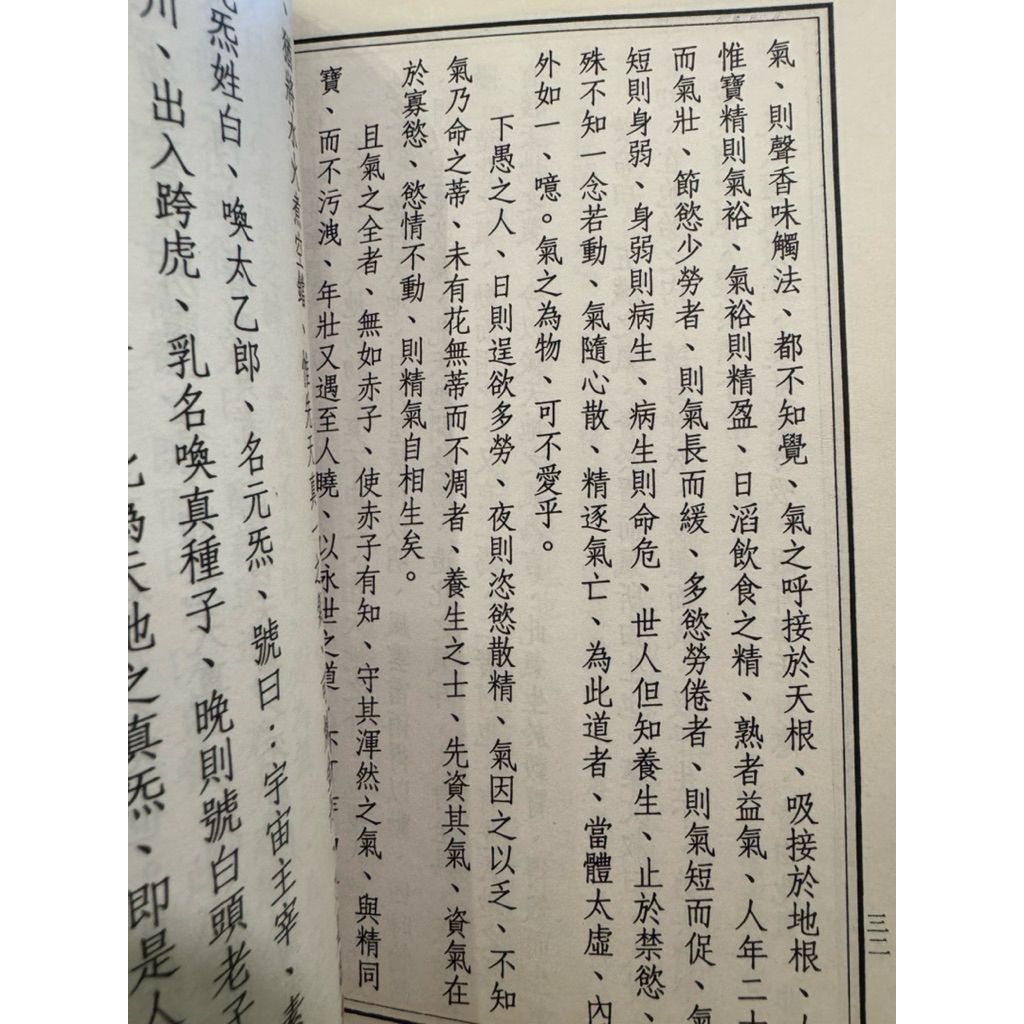 氣、則聲香味觸法、都不知覺、氣之呼接於天根、吸接於地根、人
惟寶精則氣裕、氣裕則精盈、日滔飲食之精、熟者益氣、人年二十
而氣壯、節慾少勞者、則氣長而緩、多慾勞倦者、則氣短而促、氣
短則身弱、身弱則病生、病生則命危、世人但知養生、止於禁慾、
殊不知一念若動、氣隨心散、精逐氣亡、為此道者、當體太虛、內
外如一、噫。氣之為物、可不愛乎。
下愚之人、日則逞欲多勞、夜則恣慾散精、氣因之以乏、不知
氣乃命之蒂、未有花無蒂而不凋者、養生之士、先資其氣、資氣在
於寡慾、慾情不動、則精氣自相生矣。
且氣之全者、無如赤子、使赤子有知、守其渾然之氣、與精同
寶、而不污洩、年壯又遇至人曉、以永世之道
炁姓白、喚太乙郎、名元炁、號曰：宇宙主宰、
川、出入跨虎、乳名喚真種子、晚則號白頭老子
地之真炁、即是人